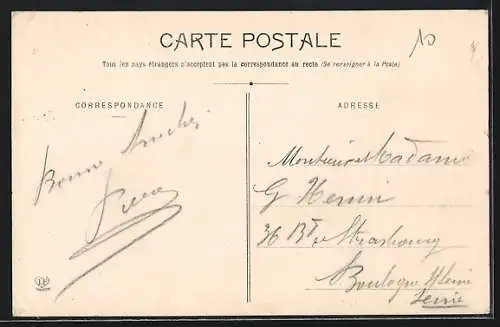 CARTE POSTALE
10
Tous les pays étrangers n'acceptent pas la correspondance au recto (Se renseigner à la Poste)
CORRESPONDANCE
Bonne Année
ADRESSE
Monsieur et Madame
G Henin
36 Bd de Strasbourg
Boulogne s/Seine
Seine